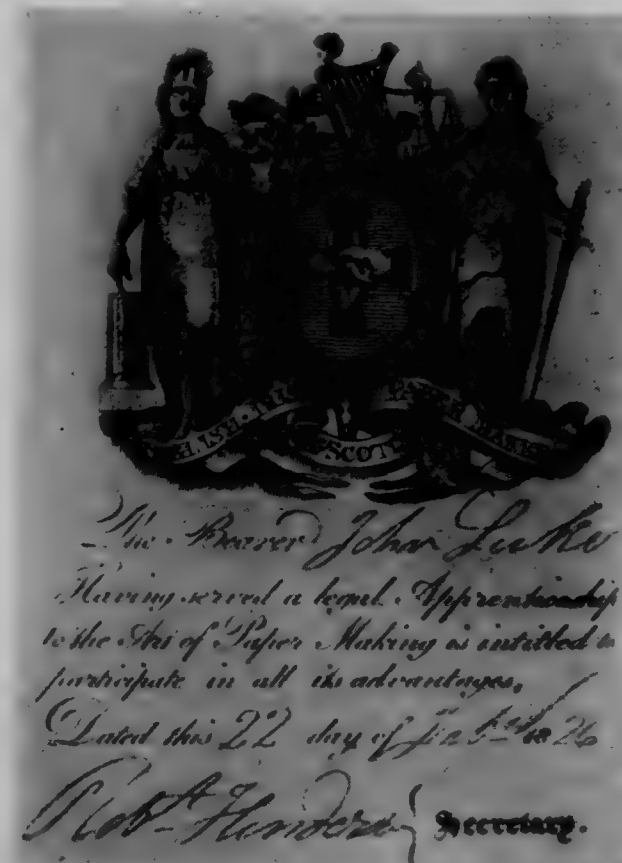 SCOT
The Bearer John Luke
Having served a legal Apprenticeship
to the Art of Paper Making is intitled to
participate in all its advantages,
Dated this 22 day of 18 26
Robt Henderson Secretary.